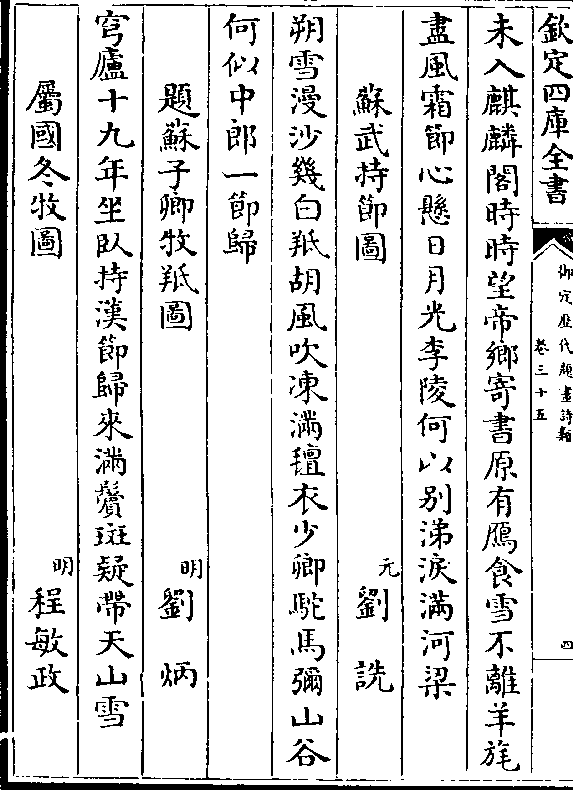 欽定四庫全書
御定歴代題畫詩類
卷三十五
四
未入麒麟閣時時望帝鄉寄書原有鴈食雪不離羊旄
盡風霜節心懸日月光李陵何以别涕淚滿河梁
蘇武持節圖
元
劉詵
朔雪漫沙幾白羝胡風吹凍滿氊衣少卿駝馬彌山谷
何似中郎一節歸
題蘇子卿牧羝圖
明
劉炳
穹廬十九年坐臥持漢節歸來滿鬢斑疑帶天山雪
屬國冬牧圖
明
程敏政